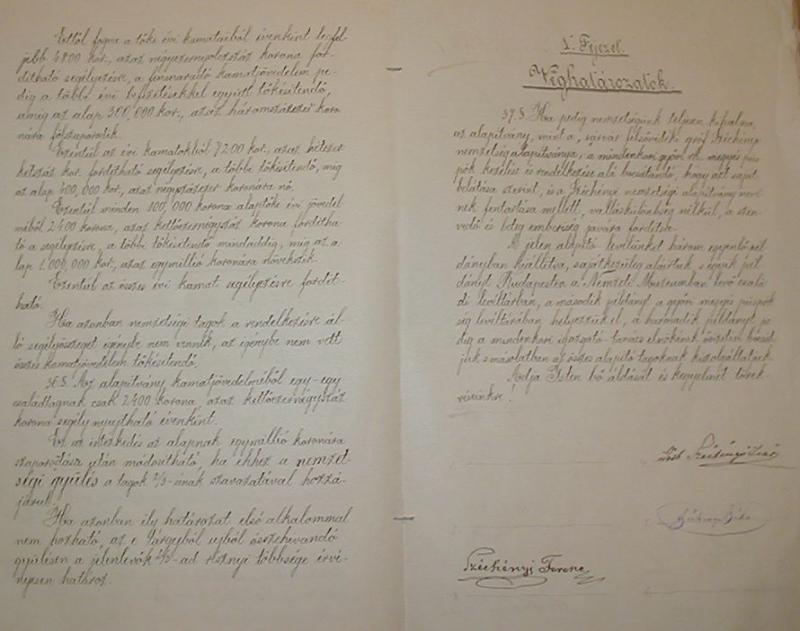 Ettől fogva a tőke évi kamataiból évenként legfel-
jebb 4800 kor., azaz négyezernyolczszáz korona for-
dítható segélyezésre, a fennmaradó kamatjövedelem pe-
dig a többi évi befizetésekkel együtt tőkésitendő,
amig az alap 300,000 kor., azaz háromszázezer koro
nára fölszaporodik.
Ezentúl az évi kamatokból 7200 kor. azaz hétezer
kétszáz kor. fordítható segélyezésre, a többi tőkésitendő, míg
az alap 400,000 kor., azaz négyszázezer koronára nő.
Ezentúl minden 100,000 korona alaptőke évi jövedel
méből 2400 korona, azaz kettőezernégyszáz korona fordítha
tó a segélyezésre, a többi tőkésitendő mindaddig, míg az a
lap 1.000,000 kor., azaz egymillió koronára növekszik.
Ezentúl az összes évi kamat segélyezésre fordít-
ható.
Ha azonban nemzetségi tagok a rendelkezésre ál-
ló segélyösszeget igénybe nem vennék, az igénybe nem vett
összes kamatjövedelem tőkésitendő.
36.§. Az alapítvány kamatjövedelméből egy-egy
családtagnak csak 2400 korona, azaz kettőezernégyszáz
korona segély nyujtható évenként.
Ez az intézkedés az alapnak egymillió koronára
szaporodása után módosítható, ha ehhez a nemzet-
ségi gyűlés a tagok 2/3-ának szavazatával hozzá-
járul.
Ha azonban ily határozat első alkalommal
nem hozható, az e tárgyból ujból összehivandó
gyűlésen a jelenlevők 2/3-ad résznyi többsége érvé-
nyesen határoz.
X. Fejezet.
Véghatározatok.
37.§. Ha pedig nemzetségünk teljesen kihalna,
az alapítvány, mint a „sárvár felsővidéki gróf Széchényi
nemzetség alapítványa", a mindenkori győri rk. megyés püs
pök kezelése és rendelkezése alá bocsátandó, hogy azt saját
belátása szerint, és a Széchényi nemzetségi alapítvány nevé
nek fentartása mellett, valláskülönbség nélkül, a szen
vedő és beteg emberiség javára fordítsa.
A jelen alapító levelünket három egyenlő pél
dányban kiállítva, sajátkezüleg aláirtuk, s egyik pél
dányt Budapesten a Nemzeti Muzeumban levő csalá
di levéltárban, a második példányt a győri megyés püspök
ség levéltárában helyezzük el, a harmadik példányt pe
dig a mindenkori igazgató-tanács elnökének őrizetére bocsát
juk s másolatban az összes alapító tagoknak kiszolgáltatjuk.
Adja Isten bő áldását és kegyelmét törek-
vésünkre!
Széchényi Jenő
Széchenyi Ferenc